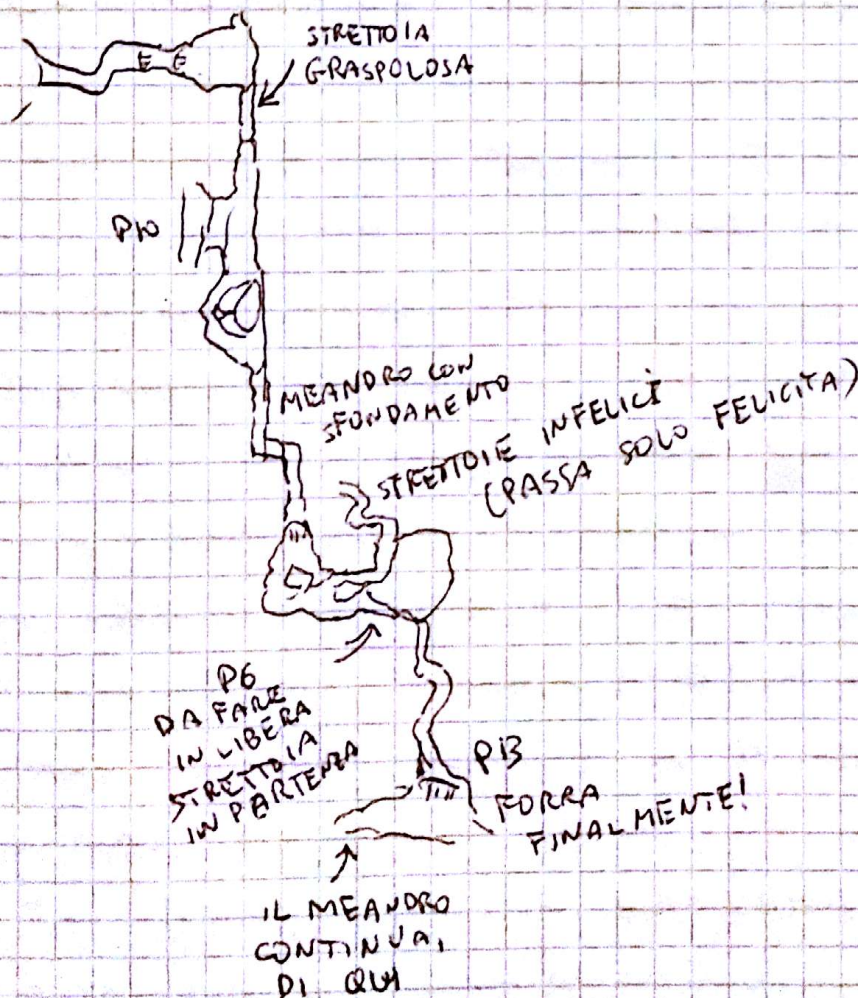 STRETTOIA
GRASPOLOSA
P10
MEANDRO CON
SFONDAMENTO
STRETTOIE INFELICI
(PASSA SOLO FELICITA)
P6
DA FARE
IN LIBERA
STRETTOIA
IN PARTENZA
P13
FORRA
FINALMENTE!
IL MEANDRO
CONTINUA,
DI QUI